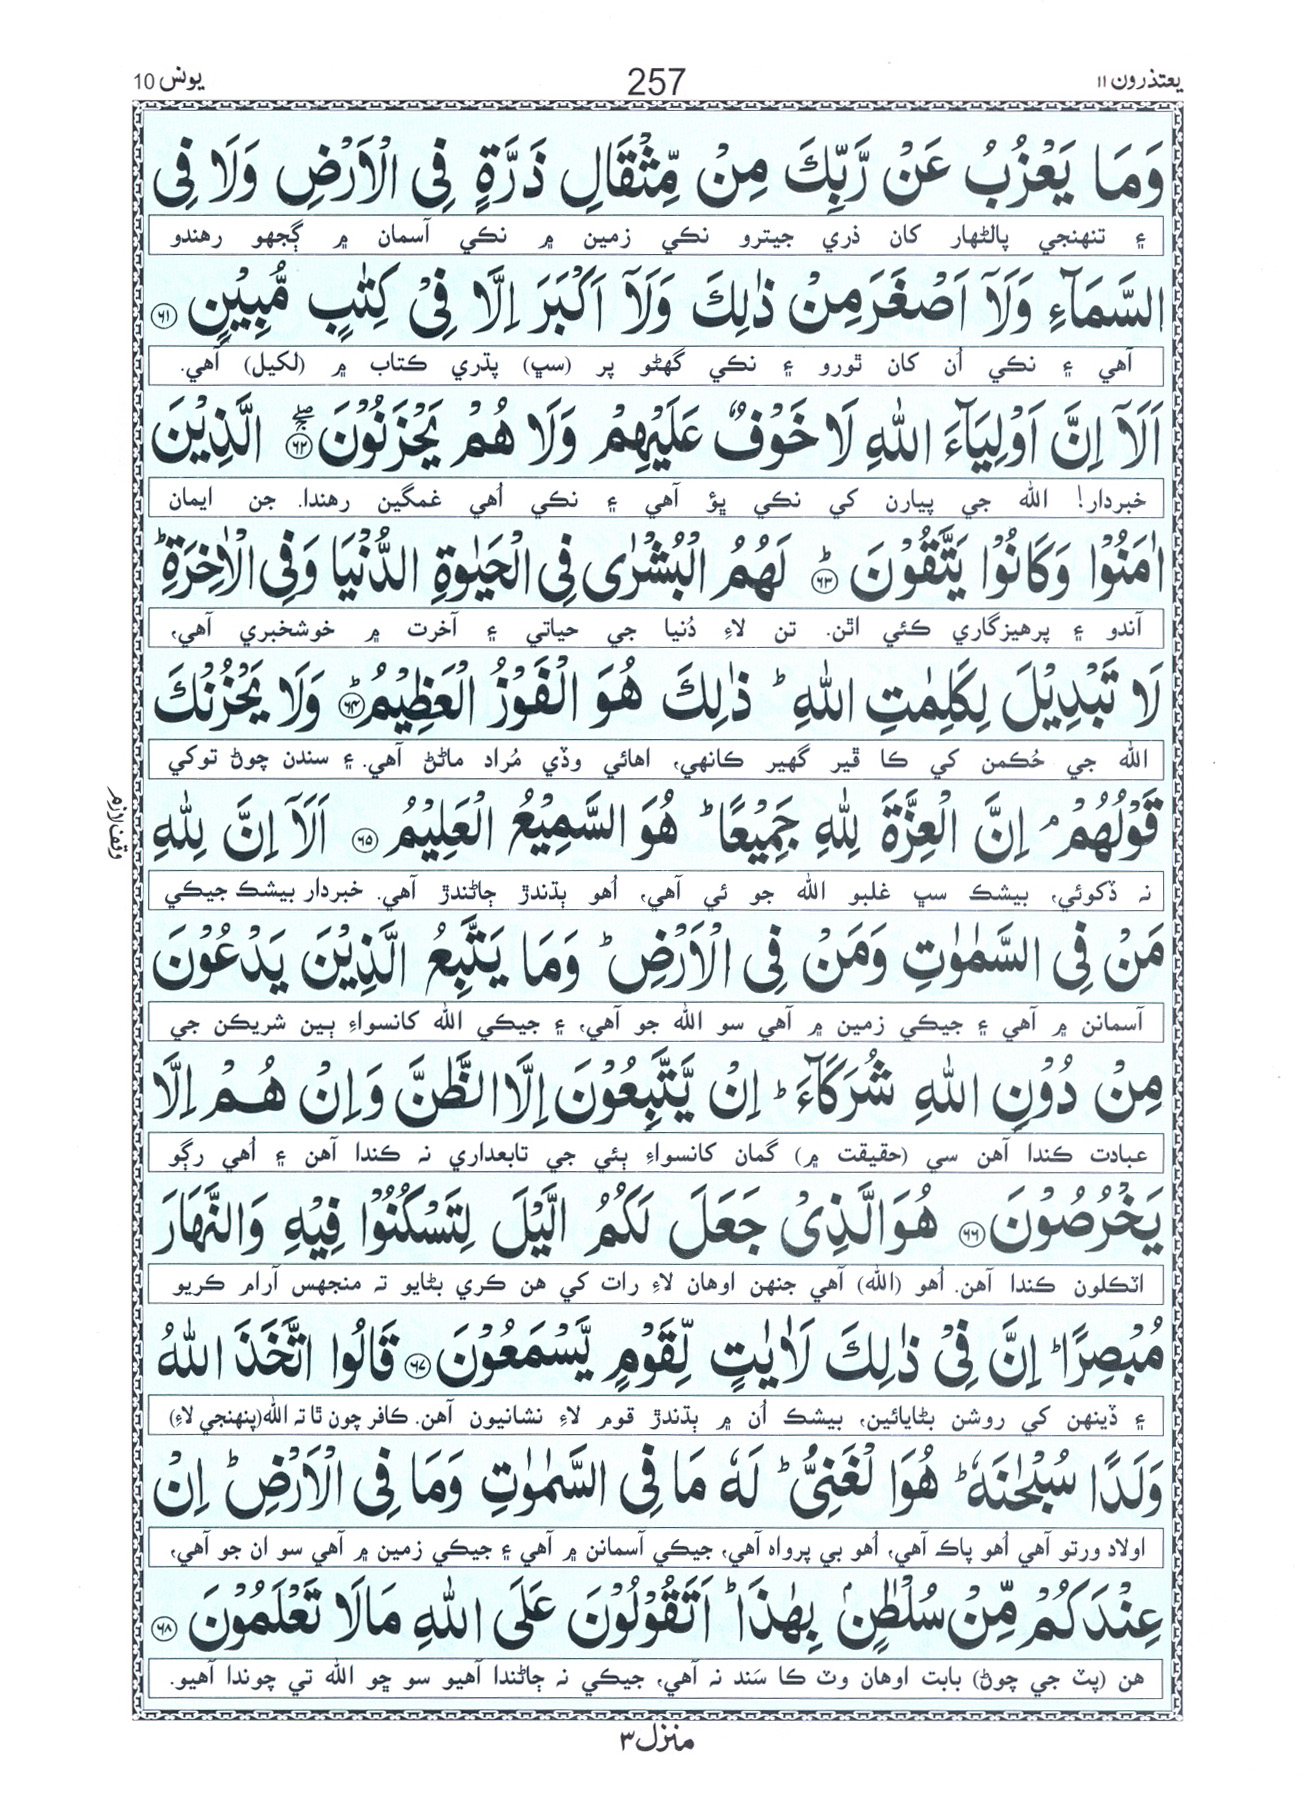 يعتذرون ١١
257
يونس 10
وَمَا يَعْزُبُ عَنْ رَّبِّكَ مِنْ مِّثْقَالِ ذَرَّةٍ فِى الْاَرْضِ وَلَا فِى
۽ تنهنجي پالڻهار کان ذري جيترو نڪي زمين ۾ نڪي آسمان ۾ ڳجهو رهندو
السَّمَآءِ وَلَآ اَصْغَرَ مِنْ ذٰلِكَ وَلَآ اَكْبَرَ اِلَّا فِىْ كِتٰبٍ مُّبِيْنٍ ﴿٦١﴾
آهي ۽ نڪي اُن کان ٿورو ۽ نڪي گهڻو پر (سڀ) پڌري ڪتاب ۾ (لکيل) آهي.
اَلَآ اِنَّ اَوْلِيَآءَ اللّٰهِ لَا خَوْفٌ عَلَيْهِمْ وَلَا هُمْ يَحْزَنُوْنَ ﴿٦٢﴾ الَّذِيْنَ
خبردار! الله جي پيارن کي نڪي ڀؤ آهي ۽ نڪي اُهي غمگين رهندا. جن ايمان
اٰمَنُوْا وَكَانُوْا يَتَّقُوْنَ ﴿٦٣﴾ لَهُمُ الْبُشْرٰى فِى الْحَيٰوةِ الدُّنْيَا وَفِى الْاٰخِرَةِ ؕ
آندو ۽ پرهيزگاري ڪئي اٿن. تن لاءِ دُنيا جي حياتي ۽ آخرت ۾ خوشخبري آهي،
لَا تَبْدِيْلَ لِكَلِمٰتِ اللّٰهِ ؕ ذٰلِكَ هُوَ الْفَوْزُ الْعَظِيْمُ ﴿٦٤﴾ وَلَا يَحْزُنْكَ
الله جي حُڪمن کي ڪا ڦير گهير ڪانهي، اهائي وڏي مُراد ماڻڻ آهي. ۽ سندن چوڻ توکي
قَوْلُهُمْ ۘ اِنَّ الْعِزَّةَ لِلّٰهِ جَمِيْعًا ؕ هُوَ السَّمِيْعُ الْعَلِيْمُ ﴿٦٥﴾ اَلَآ اِنَّ لِلّٰهِ
وقف لازم
نہ ڏکوئي، بيشڪ سڀ غلبو الله جو ئي آهي، اُهو ٻڌندڙ ڄاڻندڙ آهي. خبردار بيشڪ جيڪي
مَنْ فِى السَّمٰوٰتِ وَمَنْ فِى الْاَرْضِ ؕ وَمَا يَتَّبِعُ الَّذِيْنَ يَدْعُوْنَ
آسمانن ۾ آهي ۽ جيڪي زمين ۾ آهي سو الله جو آهي، ۽ جيڪي الله کانسواءِ ٻين شريڪن جي
مِنْ دُوْنِ اللّٰهِ شُرَكَآءَ ؕ اِنْ يَّتَّبِعُوْنَ اِلَّا الظَّنَّ وَاِنْ هُمْ اِلَّا
عبادت ڪندا آهن سي (حقيقت ۾) گمان کانسواءِ ٻئي جي تابعداري نہ ڪندا آهن ۽ اُهي رڳو
يَخْرُصُوْنَ ﴿٦٦﴾ هُوَ الَّذِىْ جَعَلَ لَكُمُ الَّيْلَ لِتَسْكُنُوْا فِيْهِ وَالنَّهَارَ
اٽڪلون ڪندا آهن. اُهو (الله) آهي جنهن اوهان لاءِ رات کي هن ڪري بڻايو تہ منجهس آرام ڪريو
مُبْصِرًا ؕ اِنَّ فِىْ ذٰلِكَ لَاٰيٰتٍ لِّقَوْمٍ يَّسْمَعُوْنَ ﴿٦٧﴾ قَالُوا اتَّخَذَ اللّٰهُ
۽ ڏينهن کي روشن بڻايائين، بيشڪ اُن ۾ ٻڌندڙ قوم لاءِ نشانيون آهن. ڪافر چون ٿا تہ الله(پنهنجي لاءِ)
وَلَدًا سُبْحٰنَهٗ ؕ هُوَ الْغَنِىُّ ؕ لَهٗ مَا فِى السَّمٰوٰتِ وَمَا فِى الْاَرْضِ ؕ اِنْ
اولاد ورتو آهي اُهو پاڪ آهي، اُهو بي پرواه آهي، جيڪي آسمانن ۾ آهي ۽ جيڪي زمين ۾ آهي سو ان جو آهي،
عِنْدَكُمْ مِّنْ سُلْطٰنٍۭ بِهٰذَا ؕ اَتَقُوْلُوْنَ عَلَى اللّٰهِ مَالَا تَعْلَمُوْنَ ﴿٦٨﴾
هن (پٽ جي چوڻ) بابت اوهان وٽ ڪا سَند نہ آهي، جيڪي نہ ڄاڻندا آهيو سو ڇو الله تي چوندا آهيو.
منزل ٣